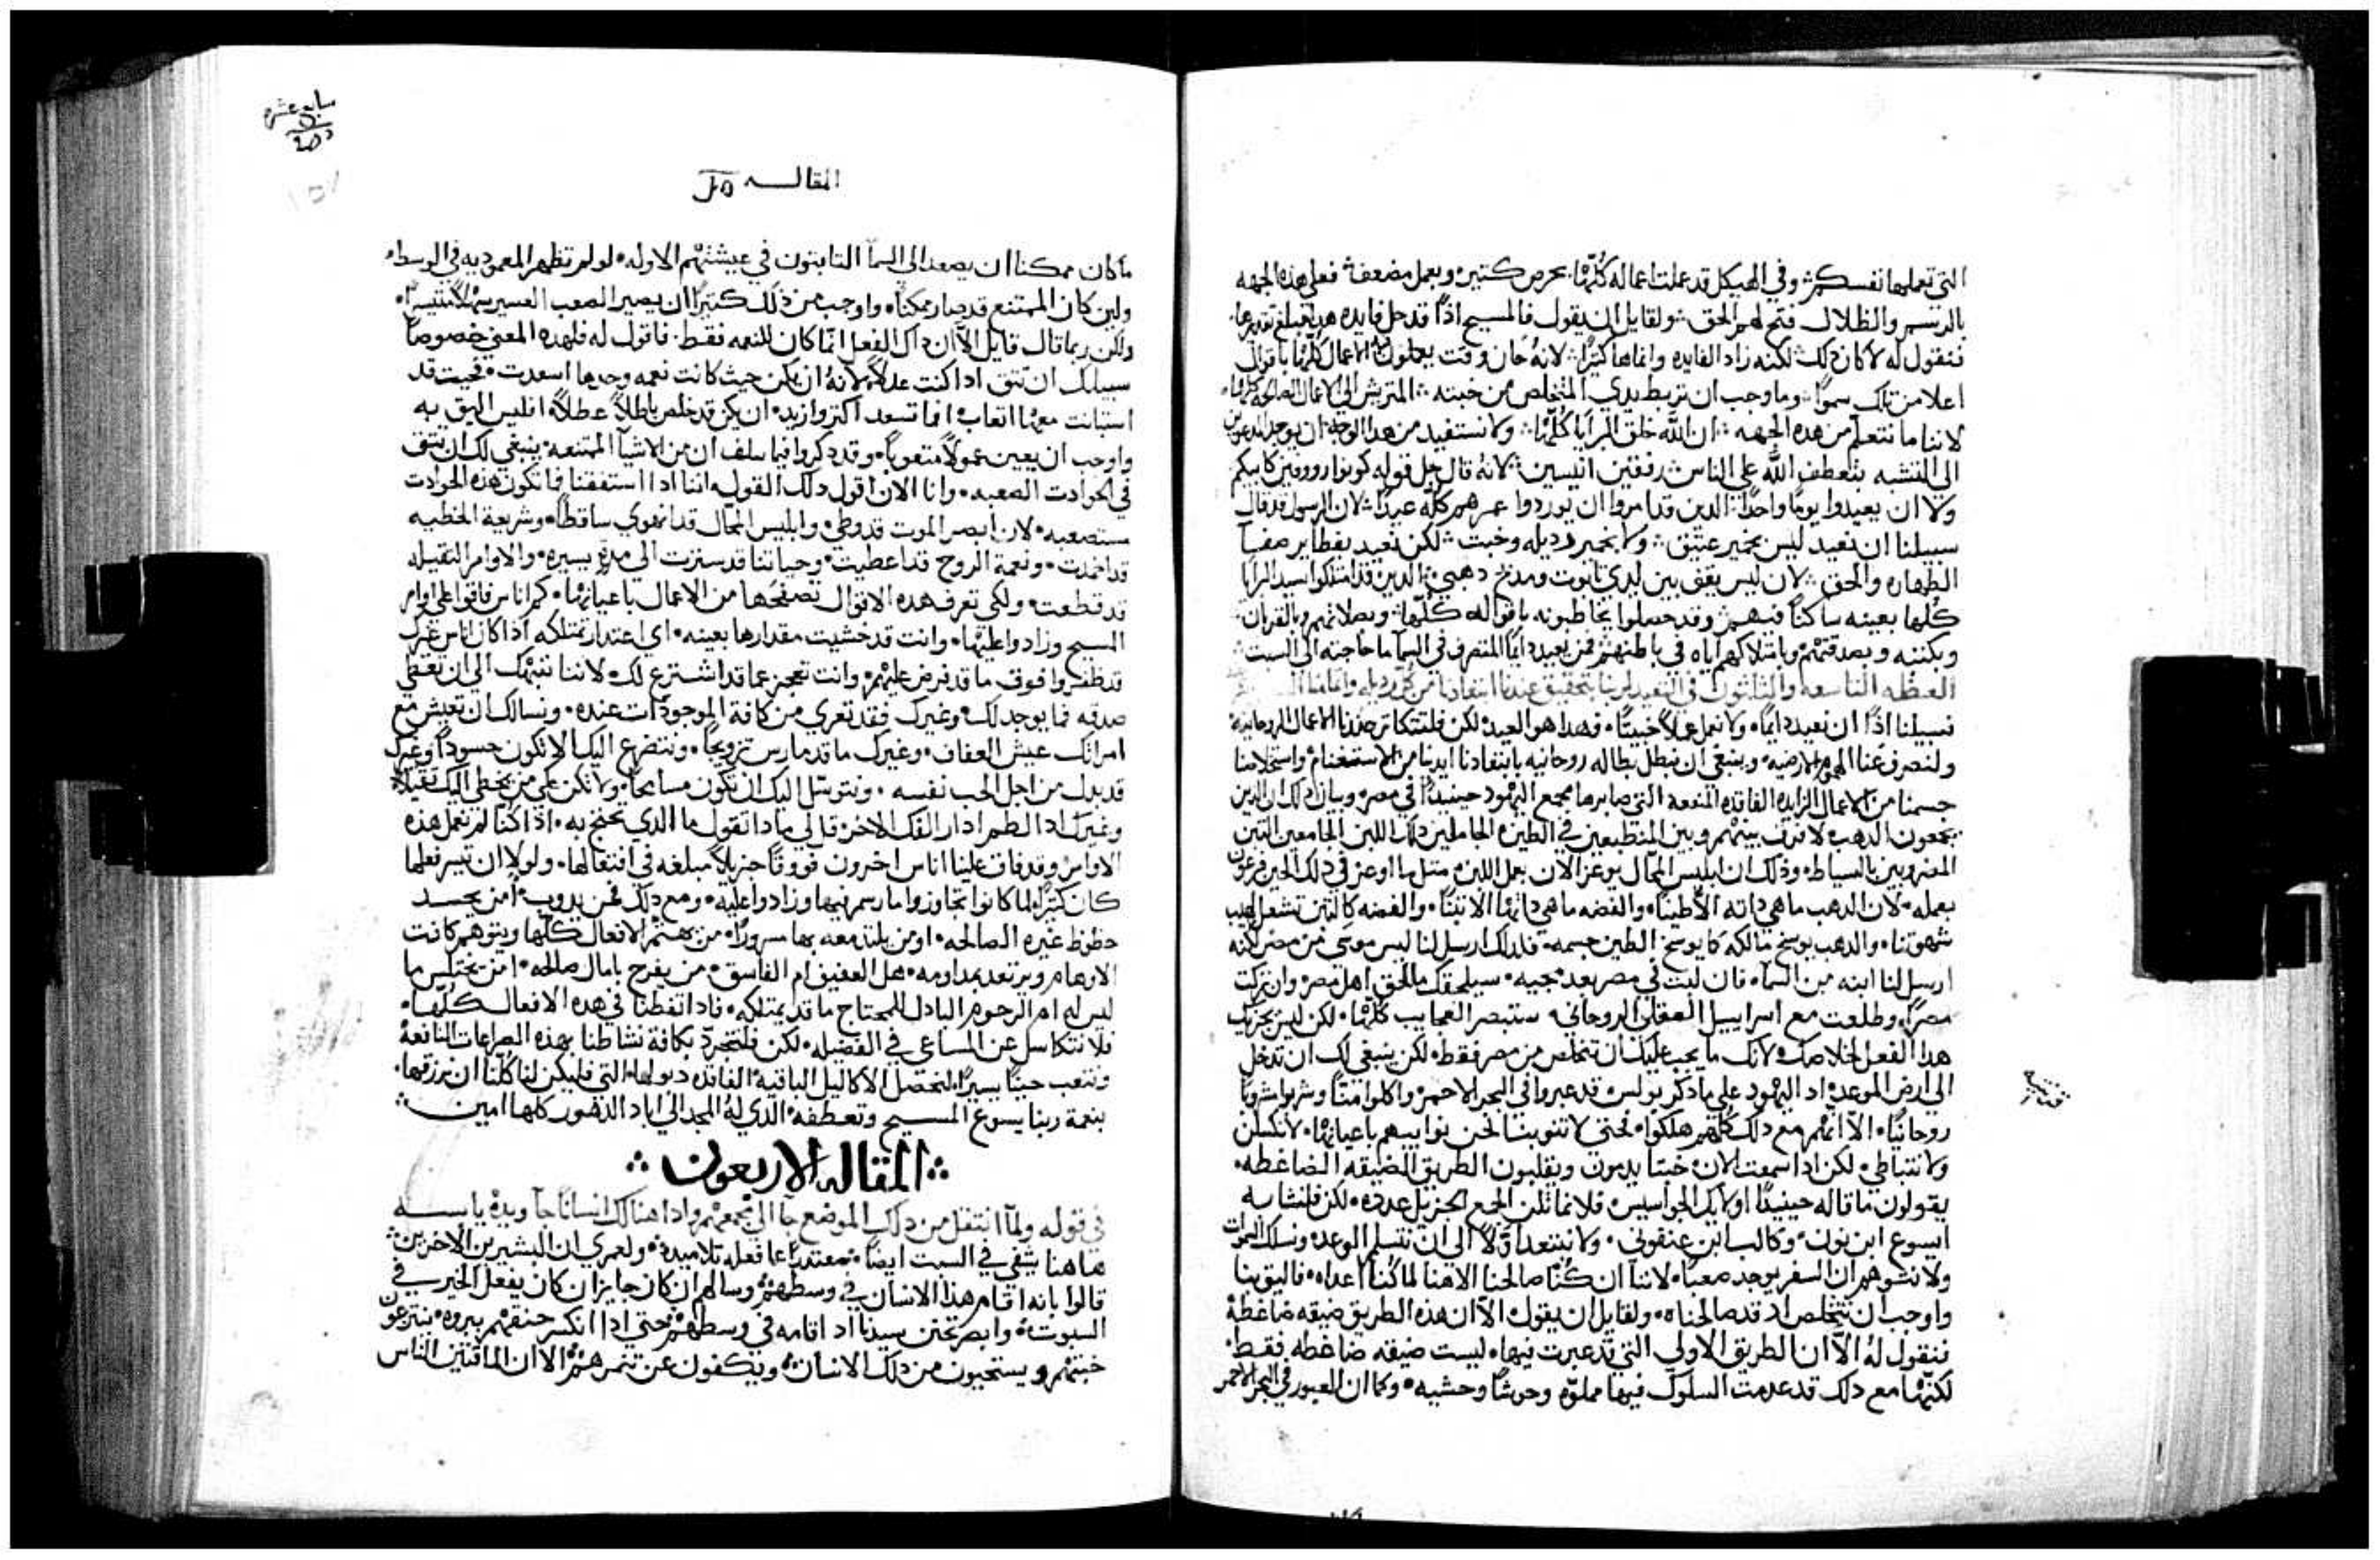 التي تعملها نفسكم وفي الهيكل قد عملت اعماله كلها بحرص كتير وبعمل مضعف فعلي هذه الجهه
بالرسم والظلال فتح لهم الحق ولقايل ان يقول فالمسيح اذًا قد حل فايده هذا مبلغ تقديرها
فنقول له لا كان ذلك لكنه زاد الفايده وانماها كثيرًا لانه حان وقت يعملون الاعمال كلها باقوال
اعلا من تلك سموًا وما وجب ان تربط يدي المتخلص من خبته المتريش الي الاعمال الصالحه كلها
لاننا ما نتعلم من هذه الجهه ان الله خلق البرايا كلها ولا نستفيد من هذا الوجه ان يوجد المدعوين
الي التشبه بتعطف الله علي الناس رفقين انيسين لانه قال جل قوله كونوا رووفين كابيكم
ولا ان يعيدوا يومًا واحدًا الدين قد امروا ان يوردوا عمرهم كله عيدًا لان الرسول قد قال
سبيلنا ان نعيد ليس بخمير عتيق ولا بخمير رديله وخبت لكن نعيد بفطاير صفيا
الطهاره والحق لان ليس يقف بين لدي تابوت ومدبح دهبي الدين قد امتلكوا سيد البرايا
كلها بعينه ساكنًا فيهم وقد حصلوا يخاطبونه باقواله كلها وبصلاتهم وبالقربان
وبكتبه وبصدقتهم وبامتلاكهم اياه في باطنهم فمن يعيد دايمًا المتصرف في السما ما حاجته الي السبت
العظه التاسعه والتلتون في التعييد لربنا بتحقيق عندنا ابتعادنا من كل رديله
فسبيلنا اذًا ان نعيد دايمًا ولا نعمل عملًا خبيتًا فهدا هو العيد لكن فلتتكاتر عندنا الاعمال الروحانيه
ولنصرف عنا الهموم الارضيه وينبغي ان نبطل بطاله روحانيه بابتعادنا ايدينا من الاستغنام واستخلاصنا
جسمنا من الاعمال الزايده الفاقده المنفعه التي صابرها مجمع اليهود حينيدًا في مصر وبيان ذلك ان الدين
يجمعون الدهب لا فرق بينهم وبين المنطبعين في الطين الحاملين دلك اللبن الجامعين التبن
المضروبين بالسياط وذلك ان ابليس المحال يوعز الان بعمل اللبن متل ما اوعز في دلك الحين فرعون
بعمله لان الدهب ما هي داته الا طينًا والفضه ما هي داتها الا تبنًا والفضه كالتبن تشعل لهيب
شهوتنا والدهب يوسخ مالكه كما يوسخ الطين جسمه فلدلك ارسل لنا ليس موسي من مصر لكنه
ارسل لنا ابنه من السما فان لبت في مصر بعد مجيه سيلحقك ما لحق اهل مصر وان تركت
مصرًا وطلعت مع اسراييل العقلي الروحاني ستبصر العجايب كلها لكن ليس يجزيك
هدا الفعل لخلاصك لانك ما يجب عليك ان تتخلص من مصر فقط لكن ينبغي لك ان تدخل
الي ارض الموعد اد اليهود علي ما ذكر بولس قد عبروا في البحر الاحمر واكلوا منًا وشربوا شروبًا
روحانيًا الا انهم مع دلك كلهم هلكوا فحتي لا تنوبنا نحن نوايبهم باعيانها لا نكسلن
ولا نتباطي لكن ادا سمعت الان خبتا يدمون ويقلبون الطريق المضيقه الضاغطه
يقولون ما قاله حينيدًا اوليك الجواسيس فلا نماثلن الجمع الجزيل عدده لكن فلنشابه
ايسوع ابن نون وكالب ابن عنفوني ولا نبتعد اولًا الي ان نتسلم الوعد ونسلك السموات
ولا نتوهم ان السفر يوجد صعبًا لاننا ان كنا صالحنا الاهنا لما كنا اعداه فاليق بنا
واوجب ان نتخلص اد قد صالحناه ولقايل ان يقول الا ان هذه الطريق ضيقه ضاغطة
فنقول له الا ان الطريق الاولي التي قد عبرت فيها ليست ضيقه ضاغطه فقط
لكنها مع دلك قد عدمت السلوك فيها مملوه وحوشًا وحشيه وكما ان العبور في البحر الاحمر
المقاله
ما كان ممكنا ان يصعد الي السما التابتون في عيشتهم الاوله لو لم تظهر المعموديه في الوسط
ولين كان الممتنع قد صار ممكنًا واوجب من ذلك كتيرًا ان يصير الصعب العسير سهلًا متيسرًا
ولكن ربما قال قايل الا ان داك الفعل انما كان للنعمه فقط فاقول له فلهده المعني خصوصًا
سبيلك ان تتق ادا كنت عدلًا لانه ان يكن حيث كانت نعمه وحدها اسعدت فحيت قد
استبانت معها اتعابه افما تسعد اكتر وازيد ان يكن قد خلص باطلًا عطلًا افليس اليق به
واوجب ان يعين عمولًا متعوبًا وقد دكروا فيما سلف ان من الاشيا الممتنعه ينبغي لك ان تتق
في الحوادت الصعبه وانا الان اقول دلك القول اننا ادا استفقنا فما تكون هذه الحوادت
مستصعبه لان ابصر الموت قد وطي وابليس المحال قد انهوي ساقطًا وشريعة الخطيه
قد اخمدت ونعمة الروح قد اعطيت وحياتنا قد سترت الي مدة يسيره والاوامر التقيله
قد قطعت ولكي تعرف هده الاقوال تصفحها من الاعمال باعيانها كم اناس فاقوا علي اوامر
المسيح وزادوا عليها وانت قد خشيت مقدارها بعينه اي اعتدار تمتلكه اذا كان اناس غيرك
قد طفروا فوق ما قد فرض عليهم وانت تعجز عما قد اشترع لك لاننا ننبهك الي ان تعطي
صدقه مما يوجد لك وغيرك فقد تعري من كافة الموجودات عنده ونسالك ان تعيش مع
امراتك عيش العفاف وغيرك ما قد مارس تزويجًا ونتضرع اليك الا تكون حسودًا وغيرك
قد بدل من اجل الحب نفسه ونتوسل اليك ان تكون مسامحًا ولا تكن علي من يخطي اليك تقيلًا
وغيرك اد الطم ادار الفك الاخر قالي ما دا تقول ما الدي نحتج به اذا كنا لم نعمل هذه
الاوامر وقد فاق علينا اناس اخرون فووقًا جزيلًا مبلغه في افتعالها ولولا ان تيسر فعلها
كان كتيرًا لما كانوا تجاوزوا ما رسم فيها وزادوا عليه ومع دلك فمن يدوب أمن يحسد
حظوظ غيره الصالحه او من يلتد معه بها مسرورًا من يهتم الافعال كلها ويتوهم كانت
الارهام ويرتعد بمداومه هل العفيف ام الفاسق من يفرح بامال صالحه امن يختلس ما
ليس له ام الرحوم البادل للمحتاج ما قد يمتلكه فادا تفطنا في هده الافعال كلها
فلا نتكاسل عن المساعي في الفضيله لكن فلنتجرد بكافة نشاطنا بهده الصراعات النافعة
ونتعب حينًا يسيرًا لنحصل الاكاليل الباقية الفاقده دبولها التي فليكن لنا كلنا ان نرزقها
بنعمة ربنا يسوع المسيح وتعطفه الدي له المجد الي اباد الدهور كلها امين
المقاله الاربعون
في قوله ولما انتقل من دلك الموضع جا الي مجمعهم وادا هنالك انسانًا جا ويده يابسه
هاهنا يشفي في السبت ايضًا معتدرًا عما فعله تلاميده ولعمري ان البشيرين الاخرين
قالوا بانه اقام هذا الانسان في وسطهم وسالهم ان كان جايزا ان كان يفعل الخير في
السبوت وابصر تحنن سيدنا اد اقامه في وسطهم حتي ادا انكسر حنقهم ببروه ينتزعون
خبتهم ويستحيون من دلك الانسان ويكفون عن تنمرهم الا ان الماقتين الناس